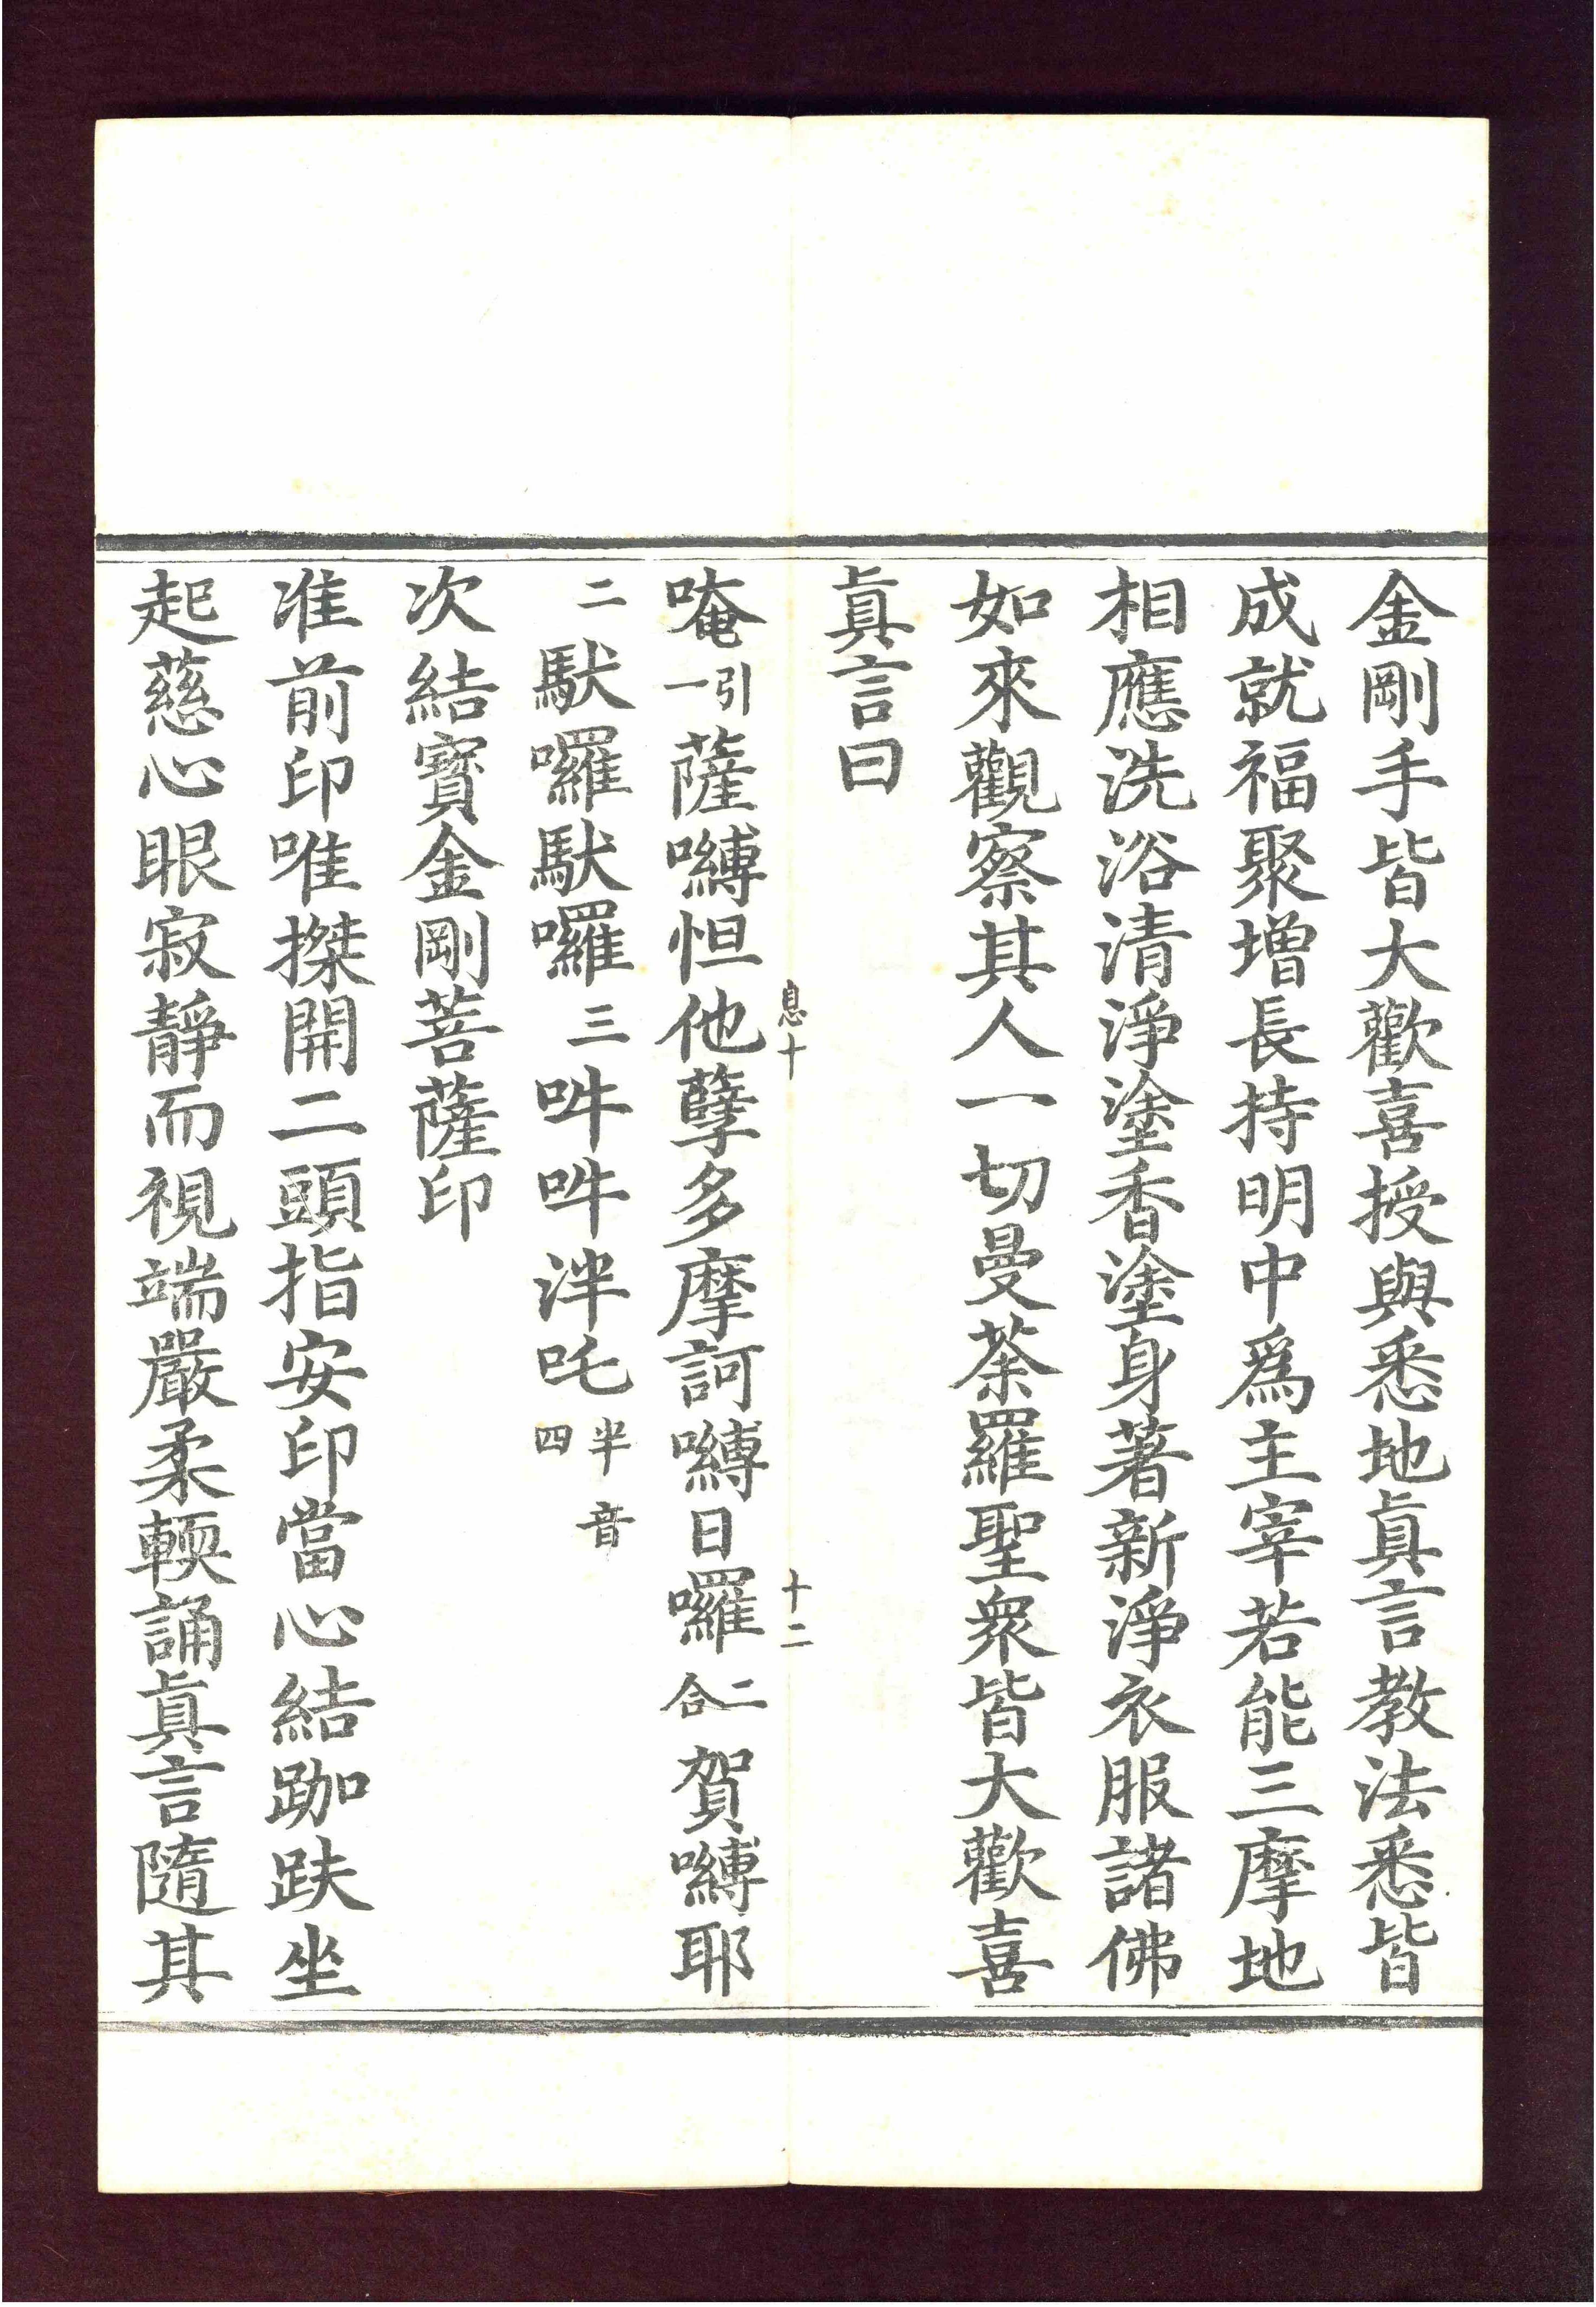 金剛手皆大歡喜授與悉地眞言教法悉皆
成就福聚增長持明中爲主宰若能三摩地
相應洗浴清淨塗香塗身著新淨衣服諸佛
如來觀察其人一切曼荼羅聖衆皆大歡喜
眞言曰
息十 十二
唵引一薩嚩怛他孽多摩訶嚩日囉二合賀嚩耶
二馱囉馱囉三吽吽泮吒半音四
次結寶金剛菩薩印
准前印唯搩開二頭指安印當心結跏趺坐
起慈心眼寂靜而視端嚴柔輭誦眞言隨其